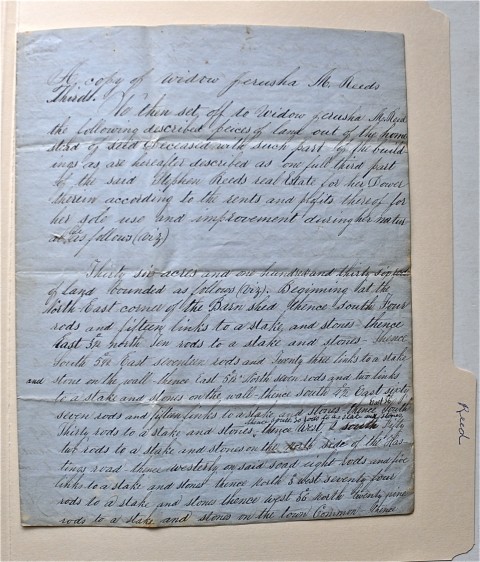 A copy of widow Jerusha M. Reeds
Thirds.
We then set off to Widow Jerusha M. Reed
the following described peices of land out of the home
stad of said Deceased with such part of the build
ings as are hereafter described as one full third part
of the said Stephen Reeds real Estate for her Dower
therein according to the rents and profits thereof for
her sole use and improvement during her natur
al as follows (viz)
Thirty six acres and one hundred and thirty six
of land bounded as follows (viz). Beginning at the
North East corner of the Barn shed thence South four
rods and fifteen links to a stake and stones thence
East 5½ north ten rods to a stake and stones thence
South 5½ East seventeen rods and twenty three links to a stake
and stone on the wall thence East 5½ North seven rods and two links
to a stake and stones on the wall thence South East sixty
seven rods and fifteen links to a stake and stones thence South
Thirty rods to a stake and stones thence West 2 South fifty
two rods to a stake and stones on the side of the Has
lings road thence westerly on said road eight rods and five
links to a stake and stones thence north 8 west seventy four
rods to a stake and stones thence west 36 north twenty nine
rods to a stake and stones on the town Common thence
Reed